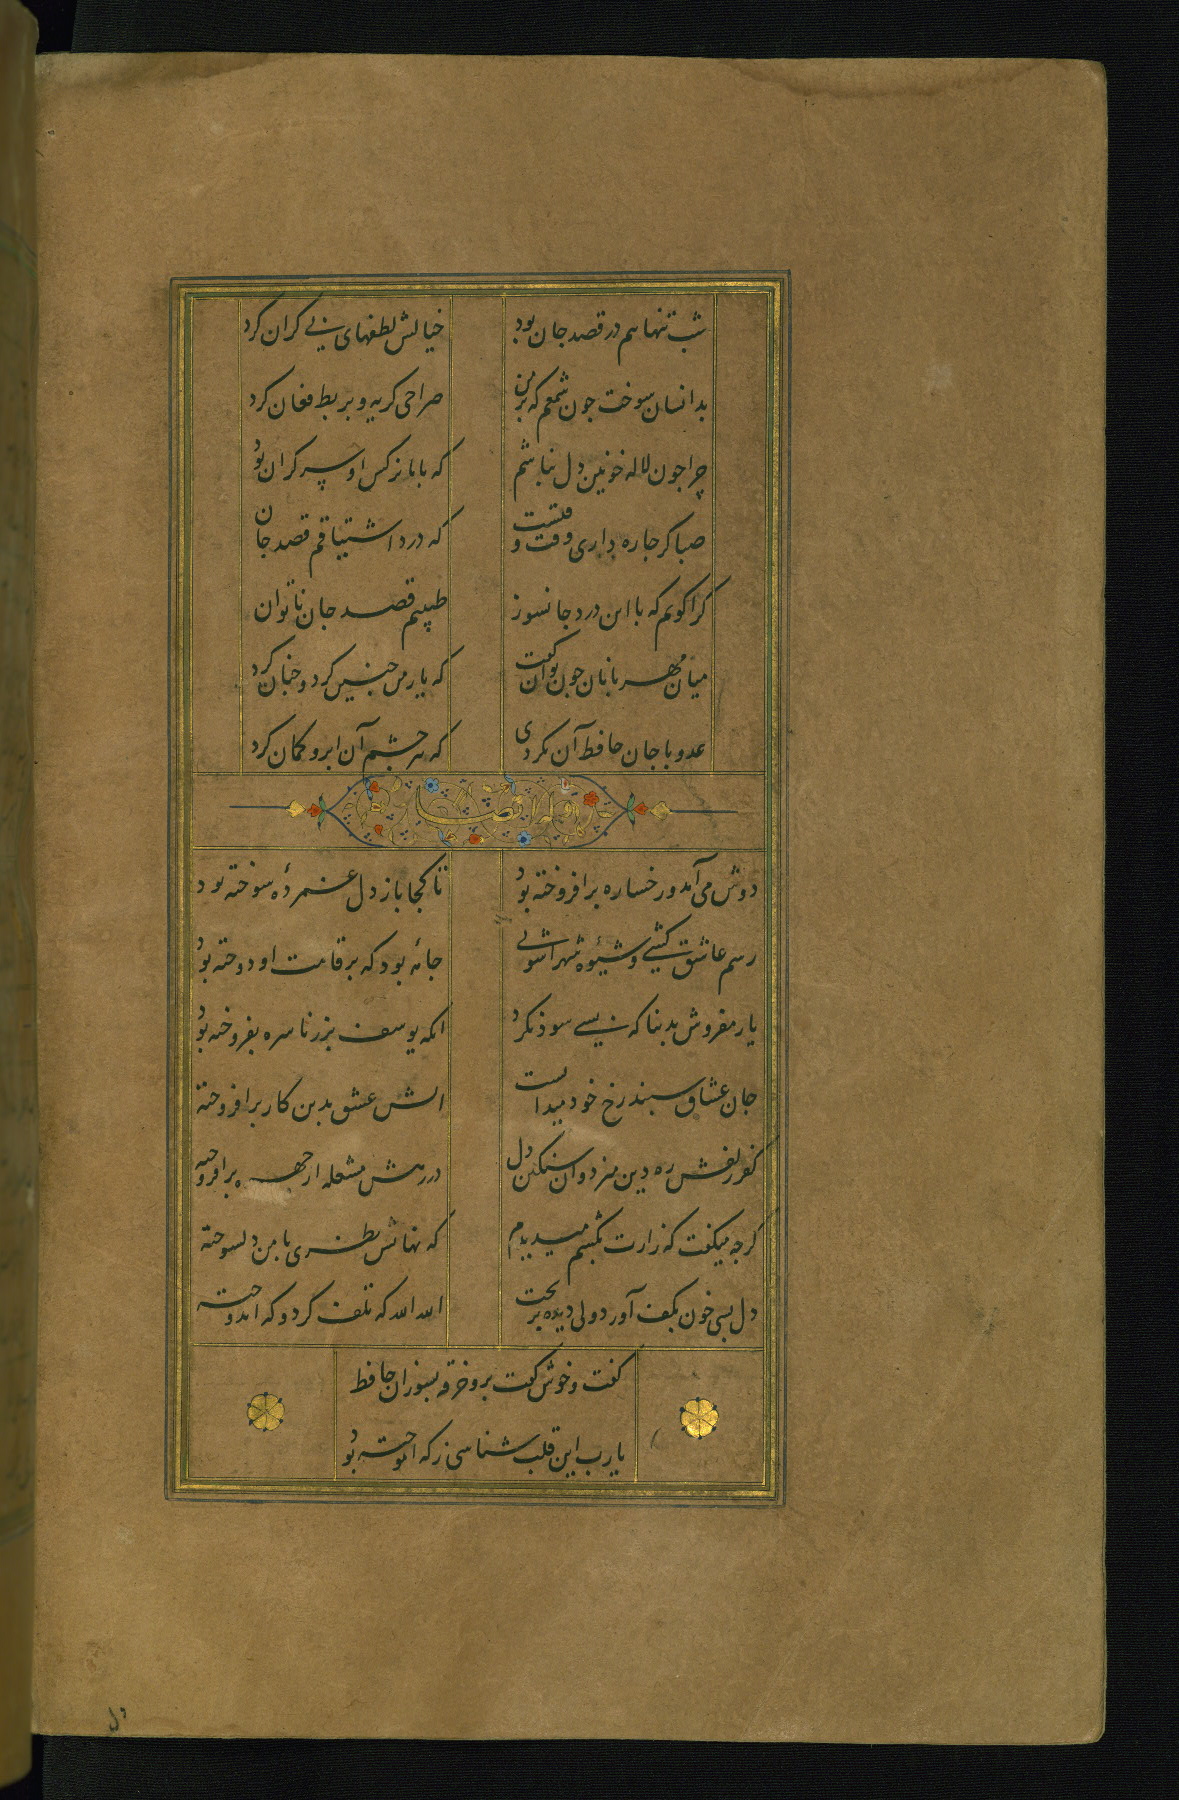 شب تنهایم در قصد جان بود خیالش لطفهای بی کران کرد
بدانسان سوخت جون شمعم که بر من صراحی کریه و بربط فغان کرد
چرا جون لاله خونین دل نباشم که با ما نرکس او سر کران بود
صبا کر جاره داری وقت وقتست که درد اشتیاقم قصد جان
کرا کویم که با این درد جانسوز طبیبم قصد جان ناتوان
میان مهربانان جون توان کفت که یار من جنین کرد و جنان کرد
عدو با جان حافظ آن نکردی که تیر جشم آن ابرو کمان کرد
وله ایضا
دوش می آمد و رخساره برافروخته بود تا کجا باز دل غمزدهٔ سوخته بود
رسم عاشق کشی و شیوهٔ شهر آشوبی جامهٔ بود که بر قامت او دوخته بود
یار مفروش بدنیا که بسی سود نکرد انکه یوسف بزر ناسره بفروخته بود
جان عشاق سپند رخ خود میدانست اتش عشق بدین کار برافروخته
کفر زلفش ره دین میزد و ان سنکین دل در رهش مشعله از جهره برافروخته
کرجه میکفت که زارت بکشم میدیدم که نهانش نظری با من دلسوخته
دل بسی خون بکف آورد ولی دیده بریخت الله الله که تلف کرد و که اندوخته
کفت و خوش کفت برو خرقه بسوزان حافظ
یارب این قلب شناسی ز که اموخته بود